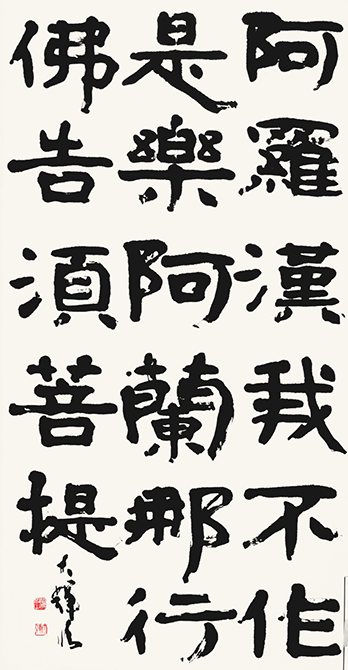 阿羅漢我不作
是樂阿蘭那行
佛告須菩提